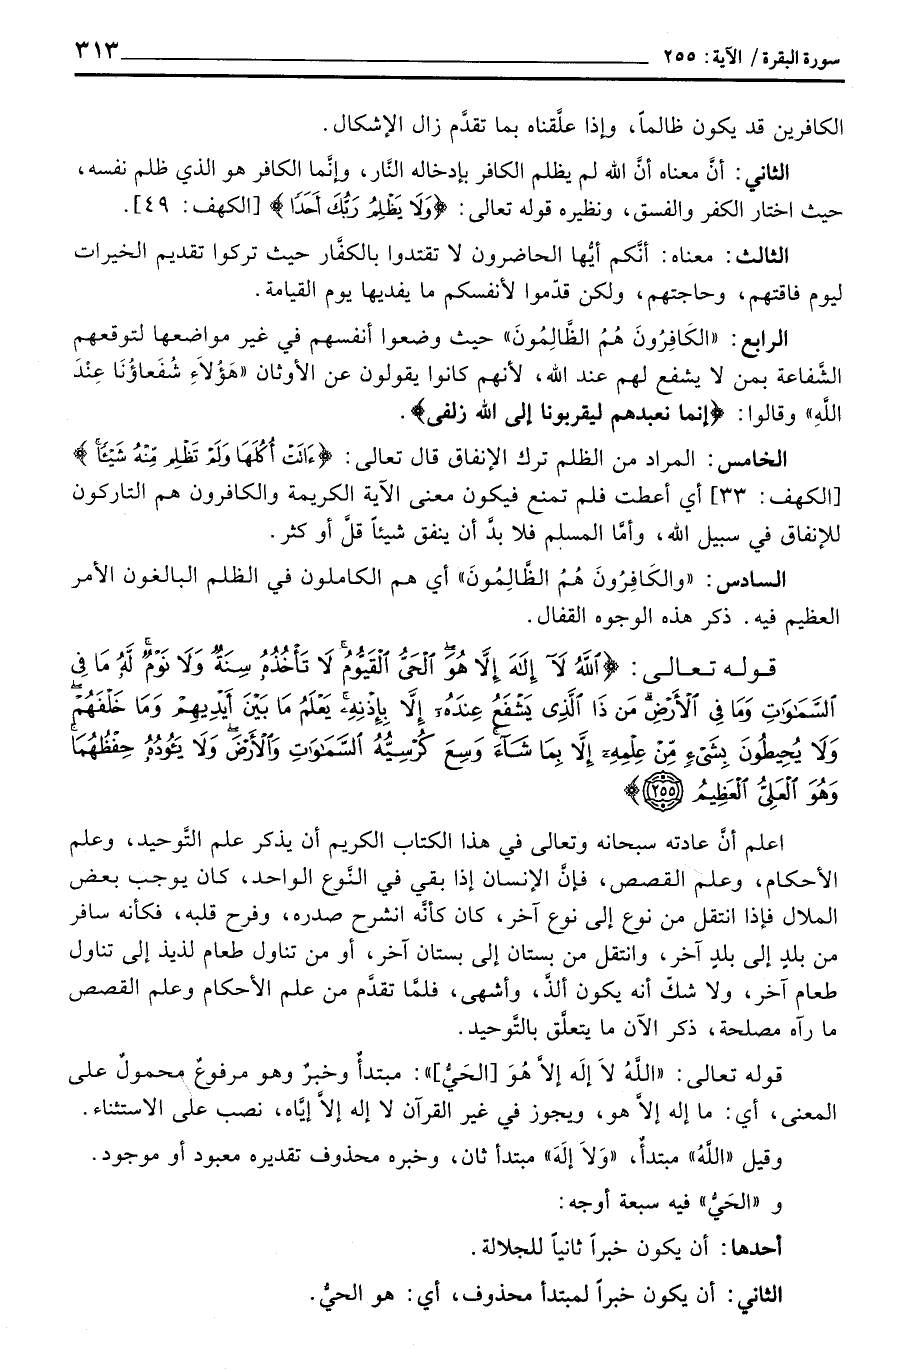 سورة البقرة / الآية: ٢٥٥ ٣١٣
الكافرين قد يكون ظالماً، وإذا علَّقناه بما تقدَّم زال الإشكال.
الثاني: أنَّ معناه أنَّ الله لم يظلم الكافر بإدخاله النَّار، وإنَّما الكافر هو الذي ظلم نفسه،
حيث اختار الكفر والفسق، ونظيره قوله تعالى: ﴿وَلَا يَظْلِمُ رَبُّكَ أَحَدًا﴾ [الكهف: ٤٩].
الثالث: معناه: أنَّكم أيُّها الحاضرون لا تقتدوا بالكفَّار حيث تركوا تقديم الخيرات
ليوم فاقتهم، وحاجتهم، ولكن قدّموا لأنفسكم ما يفديها يوم القيامة.
الرابع: «الكَافِرُونَ هُمُ الظَّالِمُونَ» حيث وضعوا أنفسهم في غير مواضعها لتوقعهم
الشَّفاعة بمن لا يشفع لهم عند الله، لأنهم كانوا يقولون عن الأوثان «هَؤُلاَءِ شُفَعاؤُنَا عِنْدَ
اللَّهِ» وقالوا: ﴿إنما نعبدهم ليقربونا إلى الله زلفى﴾.
الخامس: المراد من الظلم ترك الإنفاق قال تعالى: ﴿ءَاتَتْ أُكُلَهَا وَلَمْ تَظْلِم مِّنْهُ شَيْـًٔا﴾
[الكهف: ٣٣] أي أعطت فلم تمنع فيكون معنى الآية الكريمة والكافرون هم التاركون
للإنفاق في سبيل الله، وأمَّا المسلم فلا بدَّ أن ينفق شيئاً قلَّ أو كثر.
السادس: «والكَافِرُونَ هُمُ الظَّالِمُونَ» أي هم الكاملون في الظلم البالغون الأمر
العظيم فيه. ذكر هذه الوجوه القفال.
قوله تعالى: ﴿ٱللَّهُ لَآ إِلَٰهَ إِلَّا هُوَ ٱلْحَىُّ ٱلْقَيُّومُ ۚ لَا تَأْخُذُهُۥ سِنَةٌ وَلَا نَوْمٌ ۚ لَّهُۥ مَا فِى
ٱلسَّمَٰوَٰتِ وَمَا فِى ٱلْأَرْضِ ۗ مَن ذَا ٱلَّذِى يَشْفَعُ عِندَهُۥٓ إِلَّا بِإِذْنِهِۦ ۚ يَعْلَمُ مَا بَيْنَ أَيْدِيهِمْ وَمَا خَلْفَهُمْ ۖ
وَلَا يُحِيطُونَ بِشَىْءٍ مِّنْ عِلْمِهِۦٓ إِلَّا بِمَا شَآءَ ۚ وَسِعَ كُرْسِيُّهُ ٱلسَّمَٰوَٰتِ وَٱلْأَرْضَ ۖ وَلَا يَـُٔودُهُۥ حِفْظُهُمَا ۚ
وَهُوَ ٱلْعَلِىُّ ٱلْعَظِيمُ ۝٢٥٥﴾
اعلم أنَّ عادته سبحانه وتعالى في هذا الكتاب الكريم أن يذكر علم التَّوحيد، وعلم
الأحكام، وعلم القصص، فإنَّ الإنسان إذا بقي في النَّوع الواحد، كان يوجب بعض
الملال فإذا انتقل من نوع إلى نوع آخر، كان كأنَّه انشرح صدره، وفرح قلبه، فكأنه سافر
من بلدٍ إلى بلدٍ آخر، وانتقل من بستان إلى بستان آخر، أو من تناول طعام لذيذ إلى تناول
طعام آخر، ولا شكّ أنه يكون ألذَّ، وأشهى، فلمَّا تقدَّم من علم الأحكام وعلم القصص
ما رآه مصلحة، ذكر الآن ما يتعلَّق بالتَّوحيد.
قوله تعالى: «اللَّهُ لاَ إلَه إلاَّ هُوَ [الحَيُّ]»: مبتدأٌ وخبرٌ وهو مرفوعٌ محمولٌ على
المعنى، أي: ما إله إلاَّ هو، ويجوز في غير القرآن لا إله إلاَّ إيَّاه، نصب على الاستثناء.
وقيل «اللَّهُ» مبتدأٌ، «وَلاَ إلَهَ» مبتدأ ثان، وخبره محذوف تقديره معبود أو موجود.
و «الحَيُّ» فيه سبعة أوجه:
أحدها: أن يكون خبراً ثانياً للجلالة.
الثاني: أن يكون خبراً لمبتدأ محذوف، أي: هو الحيُّ.